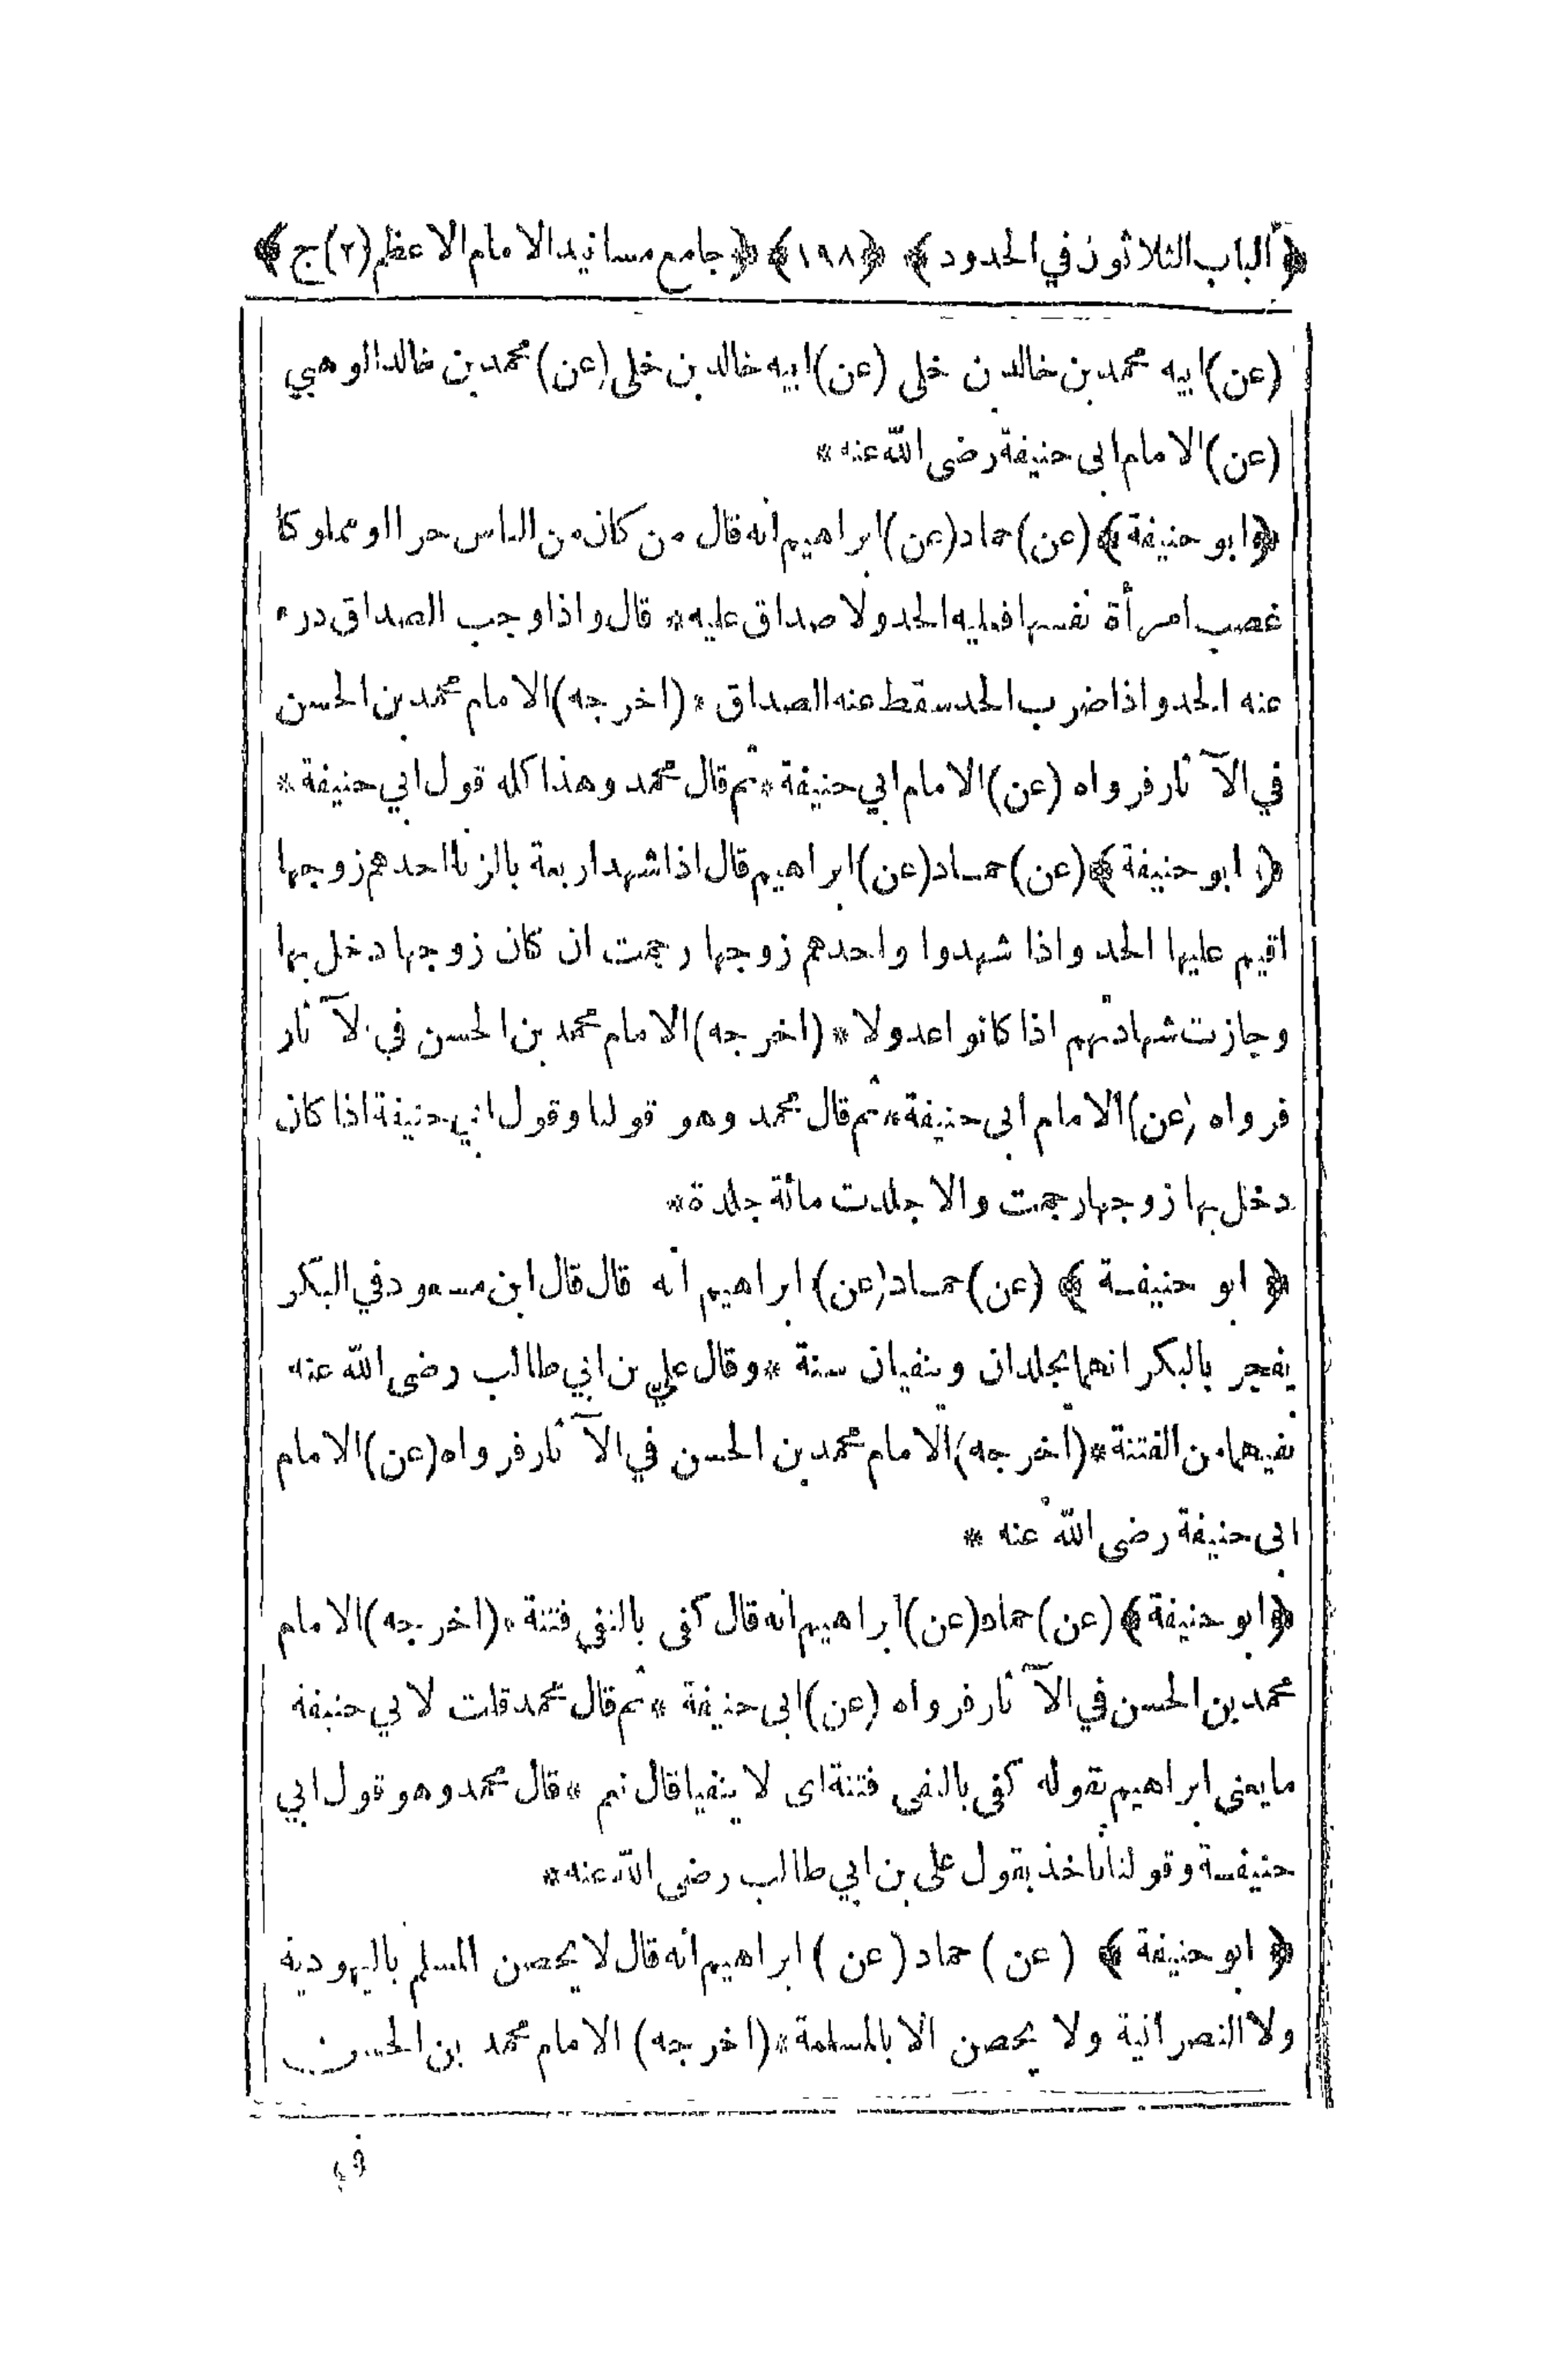 ﴿ الباب الثلاثون في الحدود ﴾ ﴿ ١٩٨ ﴾ ﴿ جامع مسانيد الامام الاعظم (٢) ج ﴾
(عن) ابيه محمد بن خالد بن خلى (عن) ابيه خالد بن خلى (عن) محمد بن خالد الوهبي
(عن) الامام ابى حنيفة رضى الله عنه *
﴿ ابو حنيفة ﴾ (عن) حماد (عن) ابراهيم انه قال من كان من الناس حرا او مملوكا
غصب امرأة نفسها فعليه الحد ولا صداق عليه * قال واذا وجب الصداق درء
عنه الحد واذا ضرب الحد سقط عنه الصداق * (اخرجه) الامام محمد بن الحسن
في الآثار فرواه (عن) الامام ابي حنيفة * ثم قال محمد وهذا كله قول ابي حنيفة *
﴿ ابو حنيفة ﴾ (عن) حماد (عن) ابراهيم قال اذا شهد اربعة بالزنا احدهم زوجها
اقيم عليها الحد واذا شهدوا واحدهم زوجها رجمت ان كان زوجها دخل بها
وجازت شهادتهم اذا كانوا عدولا * (اخرجه) الامام محمد بن الحسن في الآثار
فرواه (عن) الامام ابى حنيفة * ثم قال محمد وهو قولنا وقول ابي حنيفة اذا كان
دخل بها زوجها رجمت والا جلدت مائة جلدة *
﴿ ابو حنيفة ﴾ (عن) حماد (عن) ابراهيم انه قال قال ابن مسعود في البكر
يفجر بالبكر انهما يجلدان وينفيان سنة * وقال علي بن ابي طالب رضى الله عنه
نفيهما من الفتنة * (اخرجه) الامام محمد بن الحسن في الآثار فرواه (عن) الامام
ابى حنيفة رضى الله عنه *
﴿ ابو حنيفة ﴾ (عن) حماد (عن) ابراهيم انه قال كفى بالنفي فتنة * (اخرجه) الامام
محمد بن الحسن في الآثار فرواه (عن) ابى حنيفة * ثم قال محمد قلت لابي حنيفة
ما يعنى ابراهيم بقوله كفى بالنفى فتنة اى لا ينفيا قال نعم * قال محمد وهو قول ابي
حنيفة وقولنا ناخذ بقول على بن ابي طالب رضى الله عنه *
﴿ ابو حنيفة ﴾ (عن) حماد (عن) ابراهيم انه قال لا يحصن المسلم باليهودية
ولا النصرانية ولا يحصن الا بالمسلمة * (اخرجه) الامام محمد بن الحسن
في